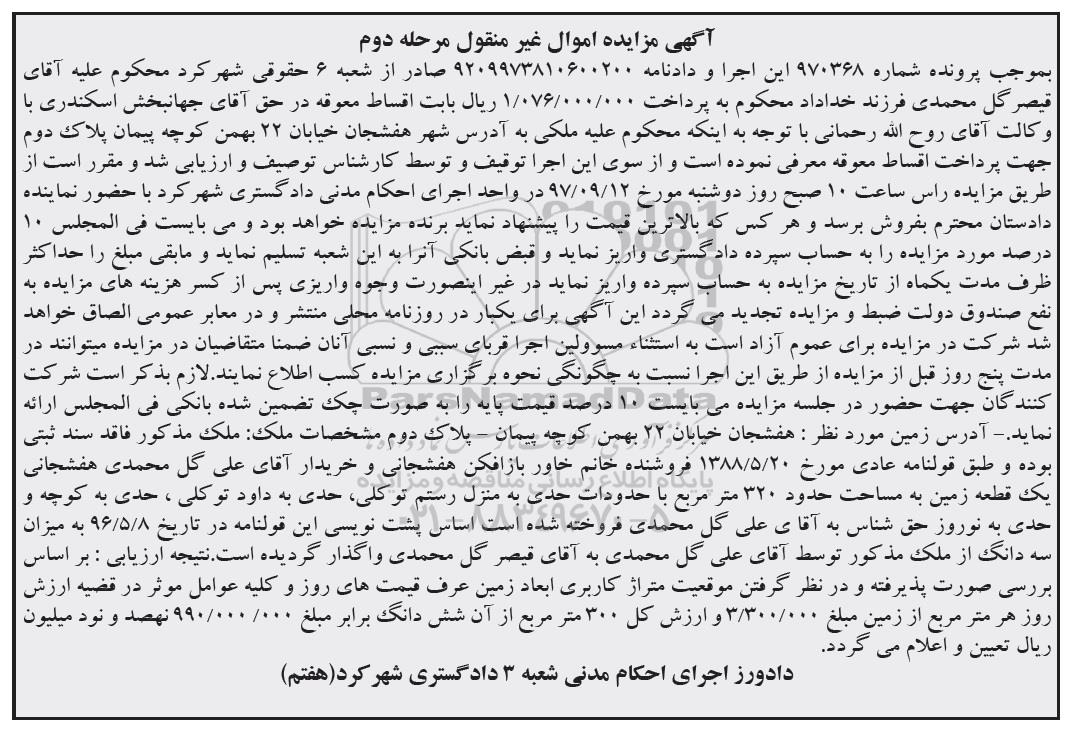 آگهی مزایده اموال غیر منقول مرحله دوم
بموجب پرونده شماره ۹۷۰۳۶۸ این اجرا و دادنامه ۹۲۰۹۹۷۳۸۱۰۶۰۰۲۰۰ صادر از شعبه ۶ حقوقی شهرکرد محکوم علیه آقای
قیصرگل محمدی فرزند خداداد محکوم به پرداخت ۱/۰۷۶/۰۰۰/۰۰۰ ریال بابت اقساط معوقه در حق آقای جهانبخش اسکندری با
وکالت آقای روح الله رحمانی با توجه به اینکه محکوم علیه ملکی به آدرس شهر هفشجان خیابان ۲۲ بهمن کوچه پیمان پلاک دوم
جهت پرداخت اقساط معوقه معرفی نموده است و از سوی این اجرا توقیف و توسط کارشناس توصیف و ارزیابی شد و مقرر است از
طریق مزایده راس ساعت ۱۰ صبح روز دوشنبه مورخ ۹۷/۰۹/۱۲ در واحد اجرای احکام مدنی دادگستری شهرکرد با حضور نماینده
دادستان محترم بفروش برسد و هر کس که بالاترین قیمت را پیشنهاد نماید برنده مزایده خواهد بود و می بایست فی المجلس ۱۰
درصد مورد مزایده را به حساب سپرده دادگستری واریز نماید و قبض بانکی آنرا به این شعبه تسلیم نماید و مابقی مبلغ را حداکثر
ظرف مدت یکماه از تاریخ مزایده به حساب سپرده واریز نماید در غیر اینصورت وجوه واریزی پس از کسر هزینه های مزایده به
نفع صندوق دولت ضبط و مزایده تجدید می گردد این آگهی برای یکبار در روزنامه محلی منتشر و در معابر عمومی الصاق خواهد
شد شرکت در مزایده برای عموم آزاد است به استثناء مسوولین اجرا قربای سببی و نسبی آنان ضمنا متقاضیان در مزایده میتوانند در
مدت پنج روز قبل از مزایده از طریق این اجرا نسبت به چگونگی نحوه برگزاری مزایده کسب اطلاع نمایند.لازم بذکر است شرکت
کنندگان جهت حضور در جلسه مزایده می بایست ۱۰ درصد قیمت پایه را به صورت چک تضمین شده بانکی فی المجلس ارائه
نماید.- آدرس زمین مورد نظر : هفشجان خیابان ۲۲ بهمن کوچه پیمان – پلاک دوم مشخصات ملک: ملک مذکور فاقد سند ثبتی
بوده و طبق قولنامه عادی مورخ ۱۳۸۸/۵/۲۰ فروشنده خانم خاور بازافکن هفشجانی و خریدار آقای علی گل محمدی هفشجانی
یک قطعه زمین به مساحت حدود ۳۲۰ متر مربع با حدودات حدی به منزل رستم توکلی، حدی به داود توکلی ، حدی به کوچه و
حدی به نوروز حق شناس به آقا ی علی گل محمدی فروخته شده است اساس پشت نویسی این قولنامه در تاریخ ۹۶/۵/۸ به میزان
سه دانگ از ملک مذکور توسط آقای علی گل محمدی به آقای قیصر گل محمدی واگذار گردیده است.نتیجه ارزیابی : بر اساس
بررسی صورت پذیرفته و در نظر گرفتن موقعیت متراژ کاربری ابعاد زمین عرف قیمت های روز و کلیه عوامل موثر در قضیه ارزش
روز هر متر مربع از زمین مبلغ ۳/۳۰۰/۰۰۰ و ارزش کل ۳۰۰ متر مربع از آن شش دانگ برابر مبلغ ۰۰۰/ ۹۹۰/۰۰۰ نهصد و نود میلیون
ریال تعیین و اعلام می گردد.
دادورز اجرای احکام مدنی شعبه ۳ دادگستری شهرکرد(هفتم)
ParsNamadData
پایگاه اطلاع رسانی مناقصه و مزایده
۰۲۱-۸۸۳۴۹۶۷۰-۵